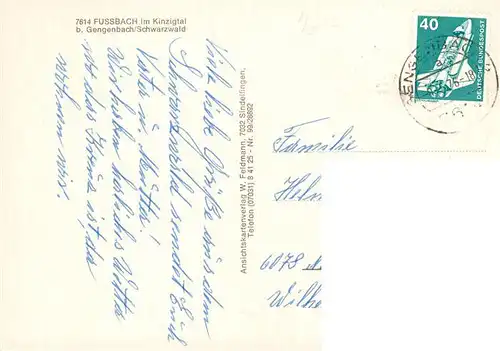 7614 FUSSBACH im Kinzigtal
b. Gengenbach/Schwarzwald
Viele liebe Grüße aus dem
Schwarzwald sendet Euch
Vater u. Mutter!
Wir haben herrliches Wetter
u. das Haus ist da
Ansichtskartenverlag W. Feldmann, 7032 Sindelfingen,
Telefon (07031) 8 41 25 · Nr. 99-28892
40
DEUTSCHE BUNDESPOST
Familie
Helm
6078
Wilhe